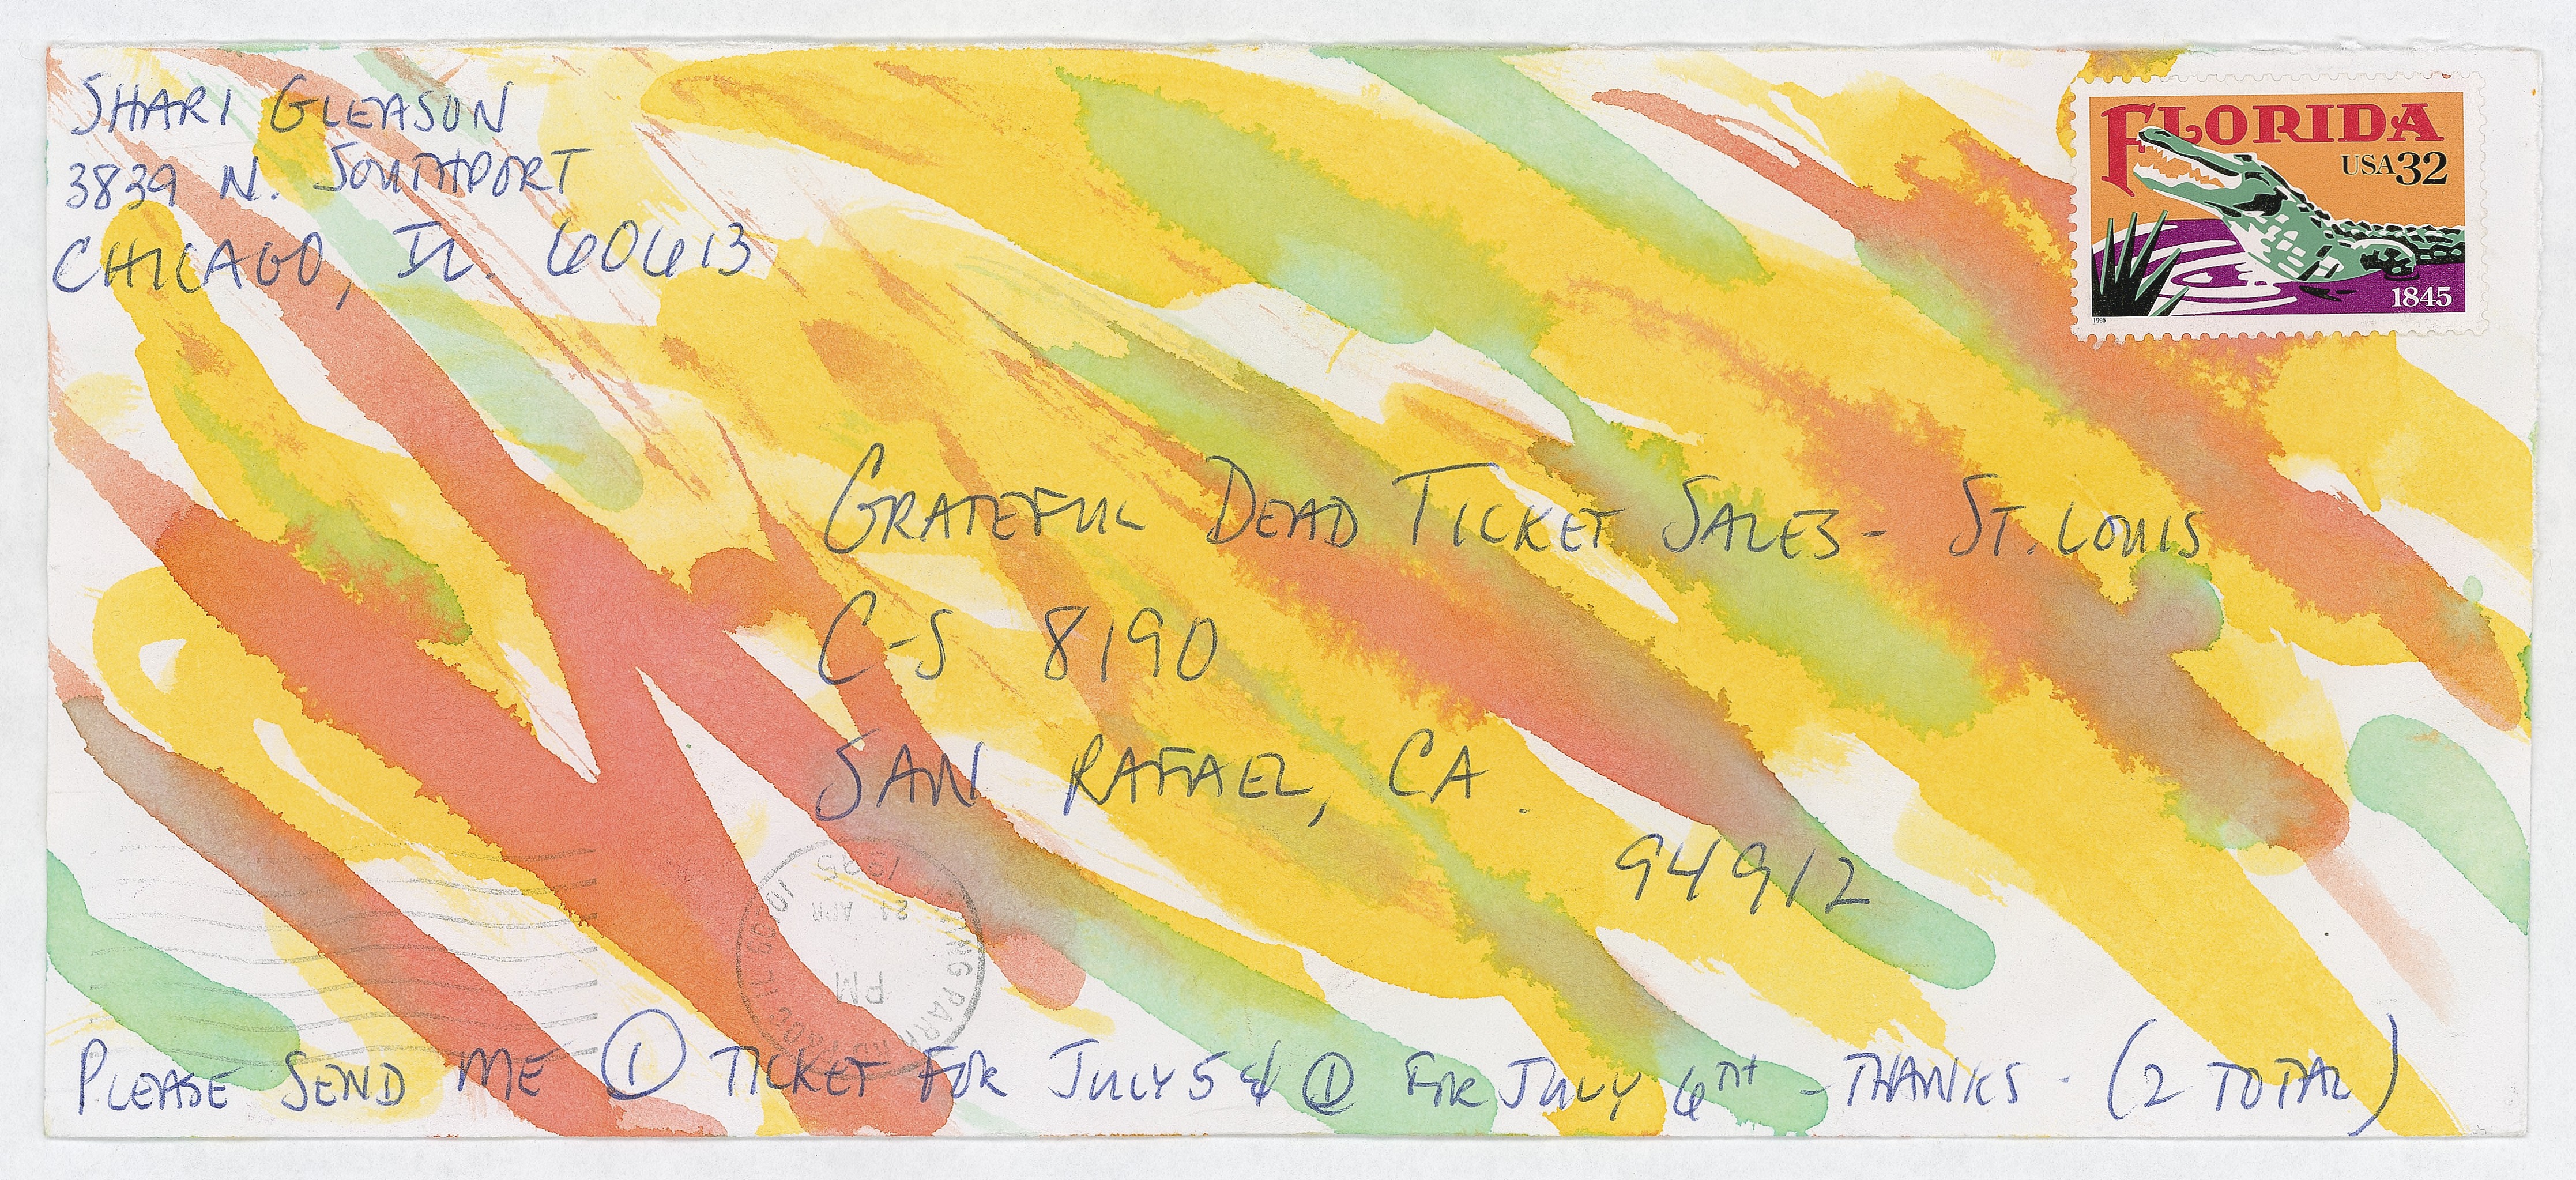 SHARI GLEASON
3839 N. SOUTHPORT
CHICAGO, IL. 60613
FLORIDA
USA 32
1845
1995
GRATEFUL DEAD TICKET SALES - ST. LOUIS
C-S 8190
SAN RAFAEL, CA.
94912
1995
21 APR
PM
PLEASE SEND ME ① TICKET FOR JULY 5 & ① FOR JULY 6TH - THANKS - (2 TOTAL)